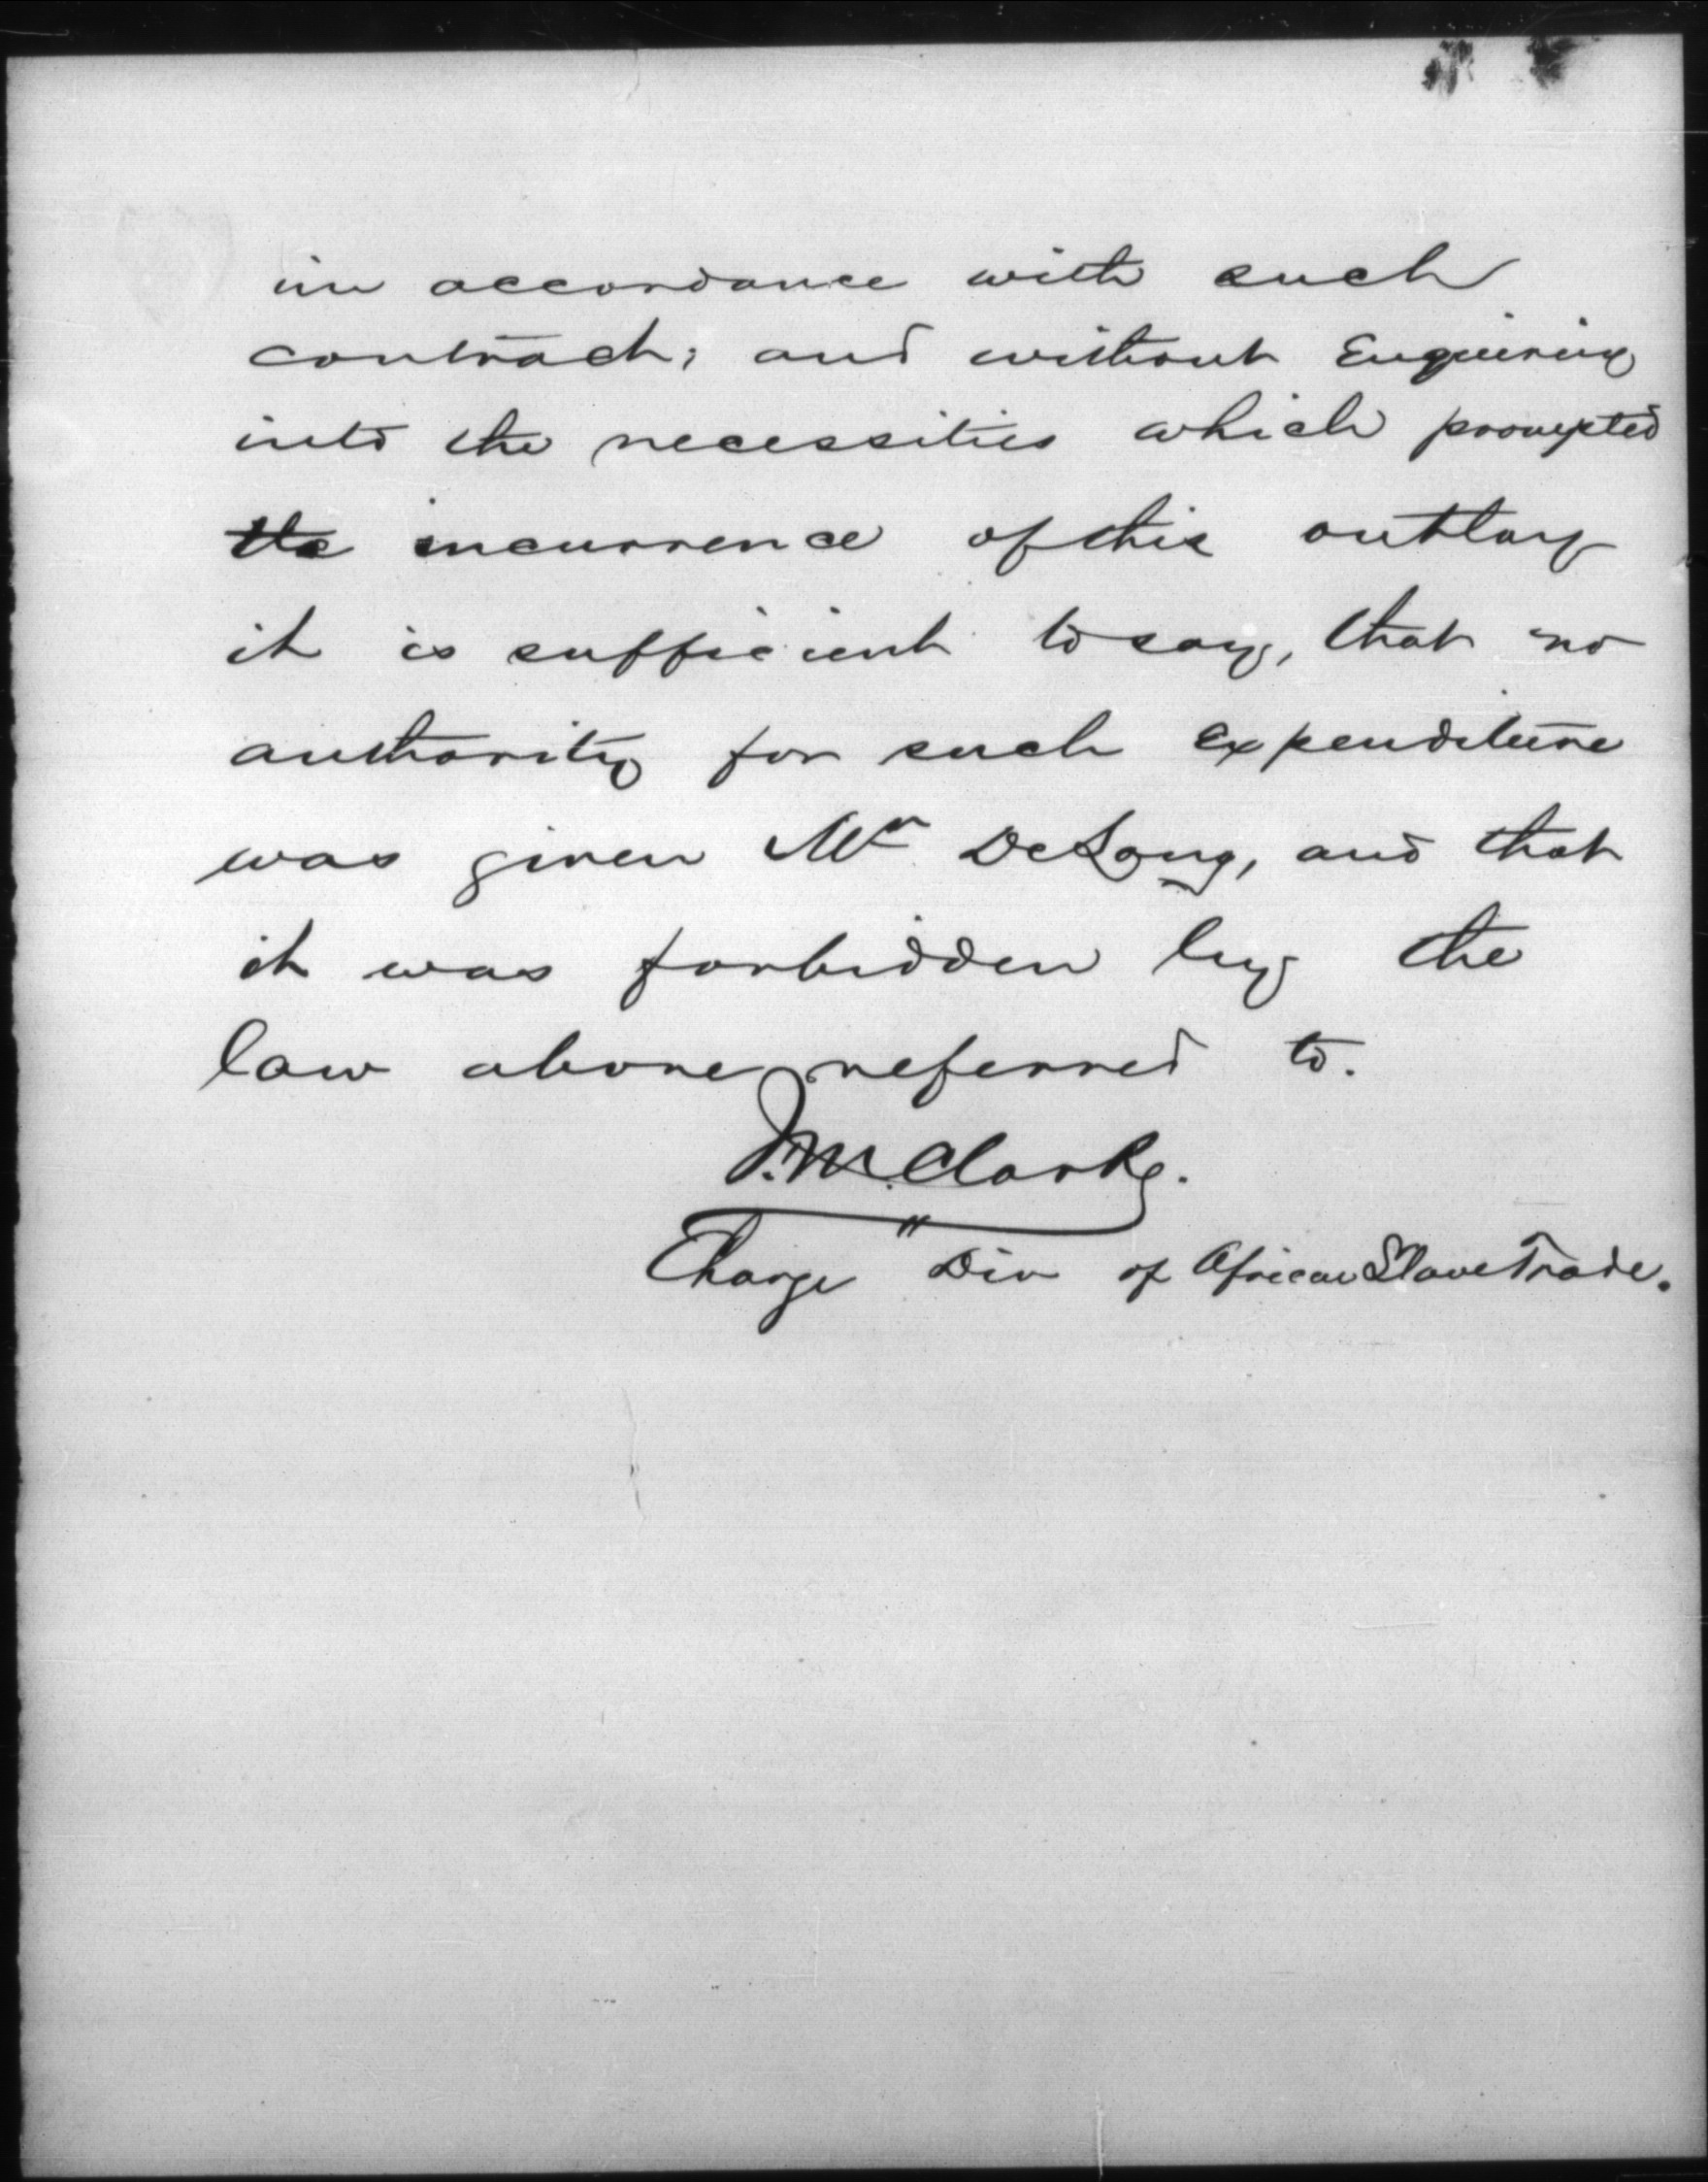 in accordance with such
contract; and without Enquiring
into the necessities which prompted
the incurrence of this outlay
it is sufficient to say, that no
authority for such expenditure
was given Mr DeLong, and that
it was forbidden by the
law above referred to.
J.M. Clarke.
Charge " Div of African Slave Trade.